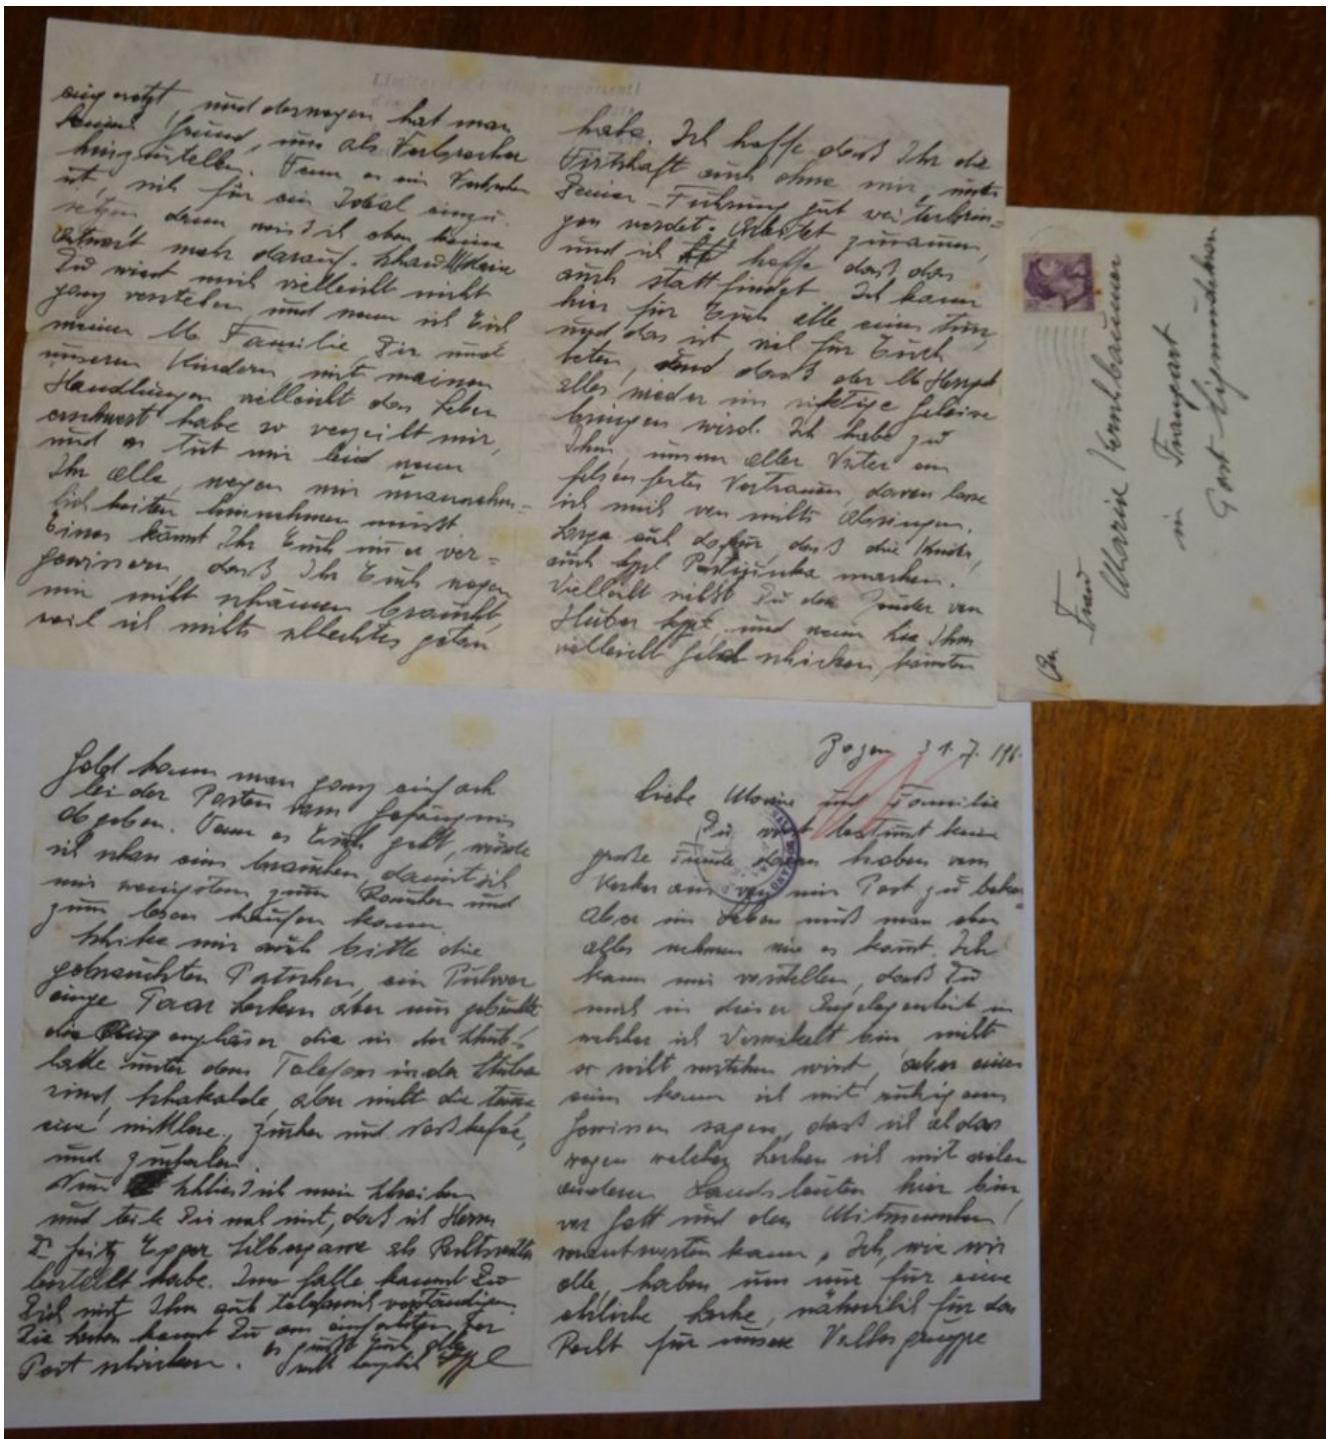 eingesetzt, und deswegen hat man
keinen Grund, uns als Verbrecher
hinzustellen. Wenn es ein Verbrechen
ist, sich für ein Ideal einzu-
setzen dann weis ich eben keine
Antwort mehr darauf. Schau Maria
Du wirst mich vielleicht nicht
ganz verstehen und wenn ich Euch
meiner lb Familie Dir und
unseren Kindern, mit meinen
Handlungen vielleicht das Leben
erschwert habe so verzeiht mir,
und es tut mir leid wenn
Ihr alle, wegen mir unannehm-
lichkeiten hinnehmen müsst
Eines könnt Ihr Euch immer ver-
gewissern, daß Ihr Euch wegen
mir nicht schämen braucht,
weil ich nichts schlechtes getan
habe. Ich hoffe daß Ihr die
Wirtschaft auch ohne mir, unter
Deiner Führung gut weiterbrin-
gen werdet. Arbeitet zusammen,
und ich hoffe daß das
auch stattfindet Ich kann
hier für Euch alle eines tun,
und das ist, viel für Euch
beten, und daß der lb Herrgott
alles wieder ins richtige Geleise
bringen wird. Ich habe zu
Ihm, unseren aller Vater ein
felsenfestes Vertrauen, davon lasse
ich mich von nichts abbringen.
Sorge auch dafür, daß die Kinder,
auch
Vielleicht rufst Du den
Huber und wenn Sie Ihm
vielleicht Geld schicken könnten
An
Frau
Maria Kerschbaumer
in Frangart
Post Sigmundskron
Geld kann man ganz einfach
bei der Porten vom Gefängnis
abgeben. Wenn es Euch geht, würde
ich schon eins brauchen, damit ich
mir wenigstens zum Rauchen und
zum lesen kaufen kann.
Schike mir auch bitte die
gebrauchten Patschen, ein Pulver
einige Paar Socken aber nur geflickte
die Augengläser die in der Schub-
lade unter dem Telefon in der Stube
sind, Schokolade, aber nicht die teure
eine mittlere, Zucker und
und
Nun schließ ich mein Schreiben
und teile Dir noch mit, daß ich Herrn
Dr Fritz Egger Silbergasse als Rechtsvertreter
bestellt habe. Im falle kannst Du
Dich mit Ihm auch telefonisch verständigen
Die Sachen kannst Du am einfachsten per
Post schicken. Es grüßt Euch alle
recht herzlich
Bozen 31.7.196
Liebe Maria und Familie
Du wirst bestimmt keine
große Freude daran haben vom
Kerker aus von mir Post zu beko
aber im Leben muß man eben
alles nehmen wie es kommt. Ich
kann mir vorstellen, daß Du
mich in dieser Angelegenheit in
welcher ich Verwikelt bin nicht
so recht verstehen wirst, aber eines
kann ich mit ruhigem
Gewissen sagen, daß ich all das
wegen welcher Sachen ich mit vielen
anderen Landsleuten hier bin,
vor Gott und den Mitmenschen
verantworten kann. Ich, wie wir
alle, haben uns nur für eine
ehrliche Sache, nähmlich für das
Recht für unsere Volksgruppe